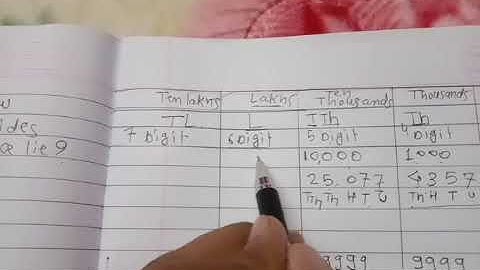 Ten lakhs Lakhs Ten Thousands Thousands
TL L TTh Th
7 Digit 6 Digit 5 Digit 4 Digit
ides
lie 9
10,000 1000
25,077 4357
Th Th H T U Th H T U
9999 9999